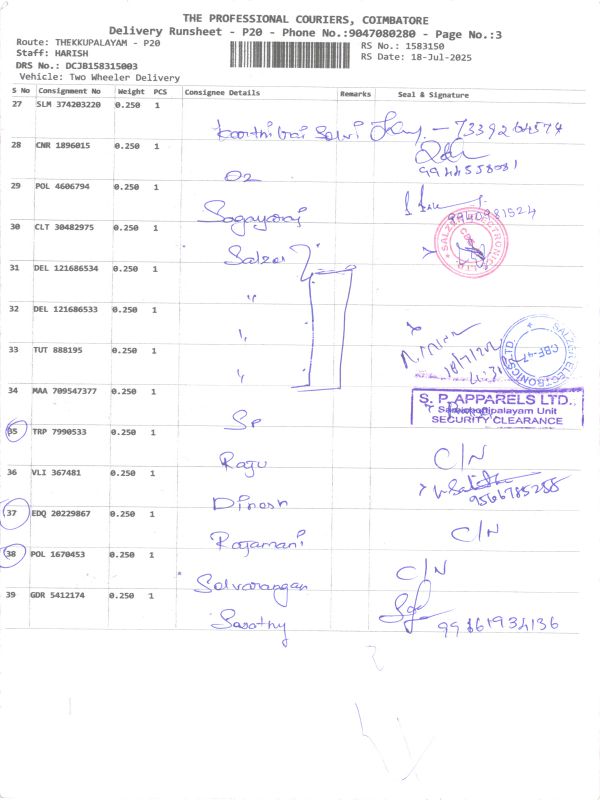 THE PROFESSIONAL COURIERS, COIMBATORE
Delivery Runsheet - P20 - Phone No.:9047080280 - Page No.:3
Route: THEKKUPALAYAM - P20
RS No.: 1583150
Staff: HARISH
RS Date: 18-Jul-2025
DRS No.: DCJB158315003
Vehicle: Two Wheeler Delivery
S No Consignment No Weight PCS Consignee Details Remarks Seal & Signature
27 SLM 374203220 0.250 1
- 7339264574
28 CNR 1896015 0.250 1
O2 9944558081
29 POL 4606794 0.250 1
Sagayaraj 9940981524
30 CLT 30482975 0.250 1
Salzer
31 DEL 121686534 0.250 1
"
32 DEL 121686533 0.250 1
"
33 TUT 888195 0.250 1
"
SALZER ELECTRONICS LTD
CBF-47
34 MAA 709547377 0.250 1
SP
S. P. APPARELS LTD.,
Unit
SECURITY CLEARANCE
35 TRP 7990533 0.250 1
Ragu C/N
36 VLI 367481 0.250 1
Dinesh 9566785258
37 EDQ 20229867 0.250 1
Rajamani C/N
38 POL 1670453 0.250 1
Selvarangan C/N
39 GDR 5412174 0.250 1
Sarathy